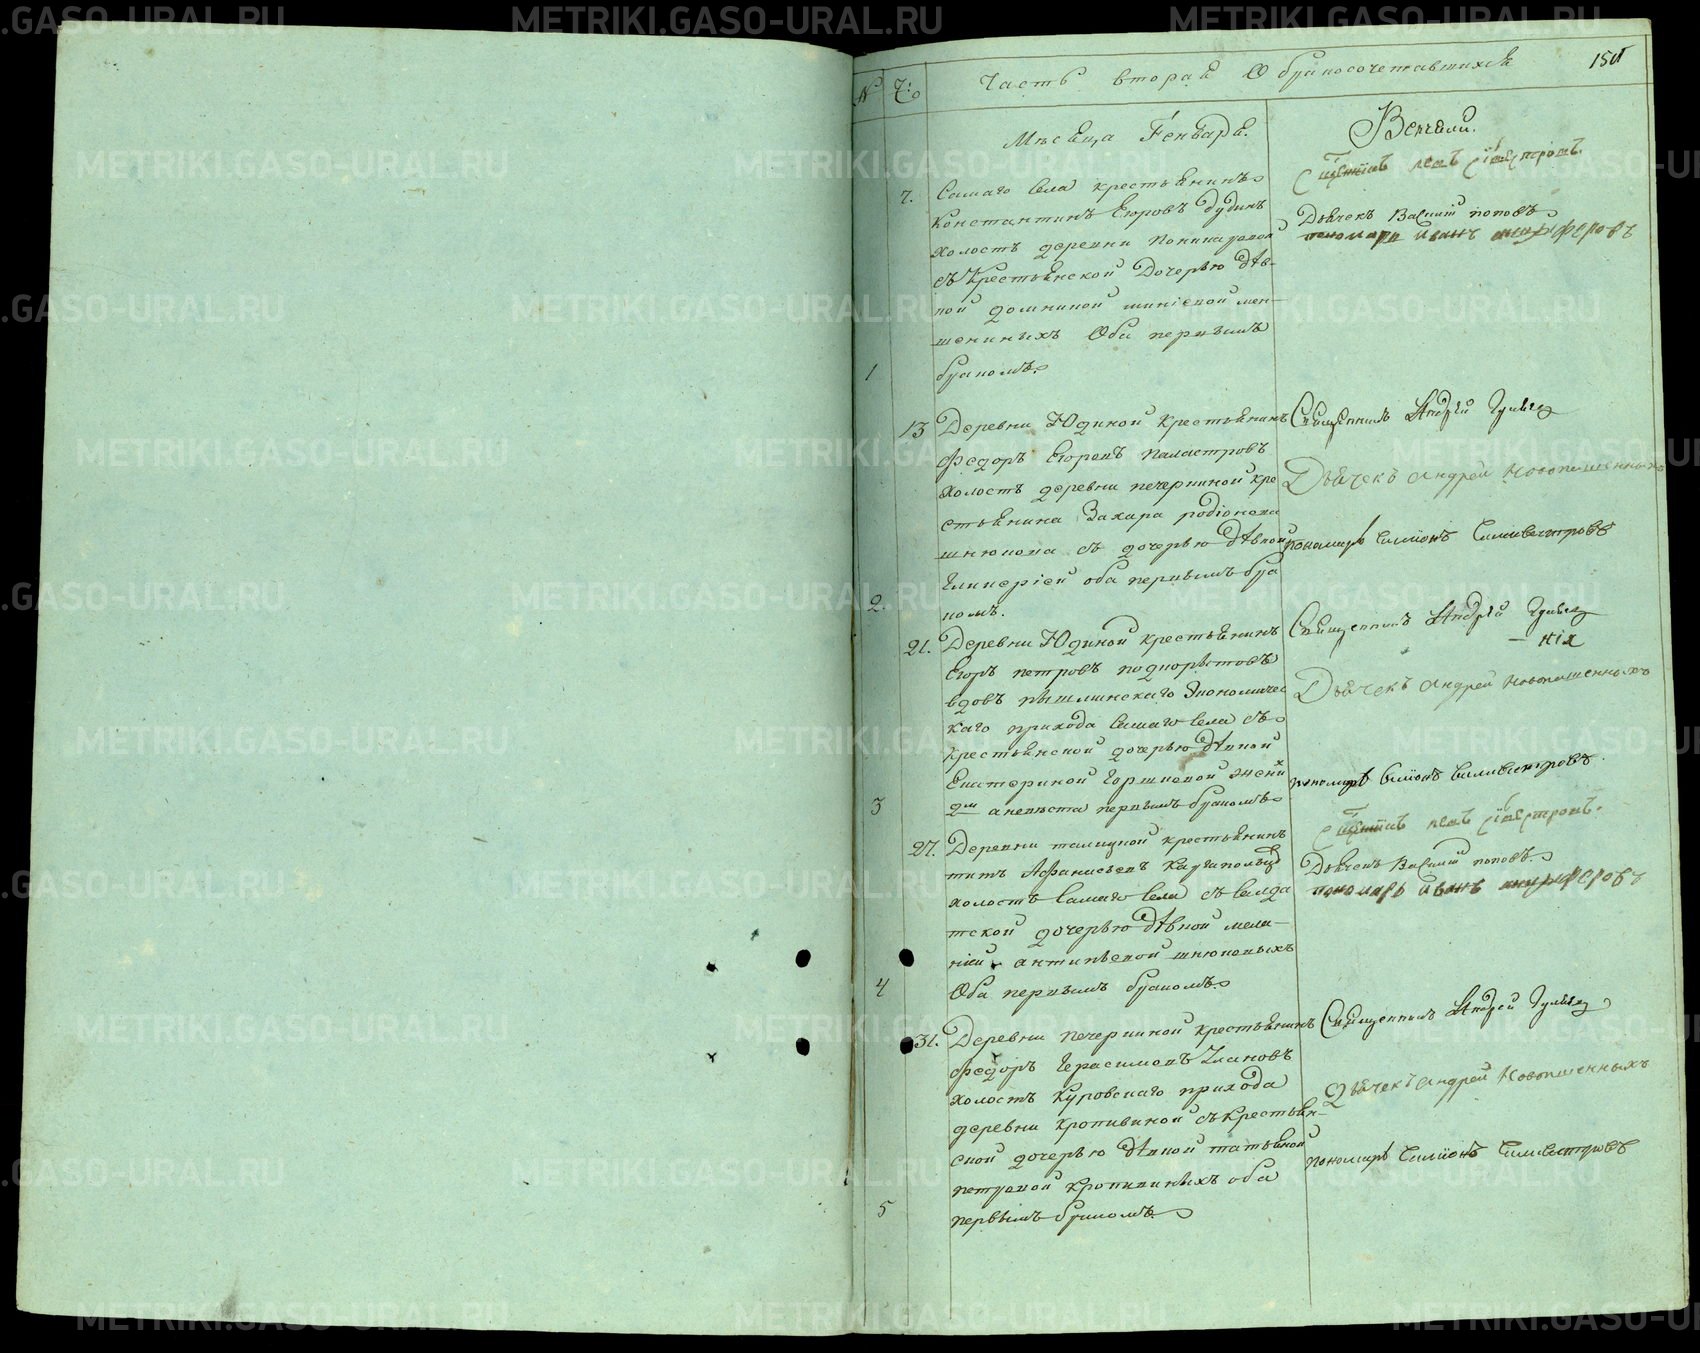 №
Чо
Часть вторая О бракосочетавшихся
150
Месяца Генваря.
Венчали.
7. Самаго села крестьянинъ
Константинъ Егоровъ Дудинъ
холостъ деревни
съ крестьянской дочерью дѣв-
кой домниной мен-
шениныхъ Оба первымъ
1 бракомъ.
Дьячекъ Василий поповъ
пономарь Иванъ
13 Деревни Юдиной крестьянинъ
Федоръ Егоровъ Паластровъ
холостъ деревни печеркиной кре
стьянина Захара родіонова
шнюкова съ дочерью дѣвкой
Гликеріей оба первымъ бра
2. комъ.
Священникъ Андрей
Дьячекъ Андрей Новопашенныхъ
пономарь Симионъ Силивестровъ
21. Деревни Юдиной крестьянинъ
Егоръ петровъ подкорытовъ
вдовъ пышминскаго Экономичес
каго прихода самаго села съ
крестьянской дочерью дѣвкой
Екатериной Горшковой жени
3 2м а невѣста первымъ бракомъ
Священникъ Андрей
Дьячекъ Андрей Новопашенныхъ
пономарь Симионъ Силивестровъ.
27. Деревни талицкой крестьянинъ
титъ Афанасьевъ
холостъ самаго села съ салда
тской дочерью дѣвкой мела-
ніей антипьевой шнюковыхъ
4 Оба первымъ бракомъ
Дьячекъ Василий поповъ.
пономарь Иванъ
31. Деревни печеркиной крестьянинъ
Федоръ Герасимовъ Улановъ
холостъ Куровскаго прихода
деревни Кропивиной съ крестьян-
ской дочерью дѣвкой татьяной
петровой Кропивиныхъ оба
5 первымъ бракомъ.
Священникъ Андрей
Дьячекъ Андрей Новопашенныхъ
пономарь Симионъ Силивестровъ
METRIKI.GASO-URAL.RU